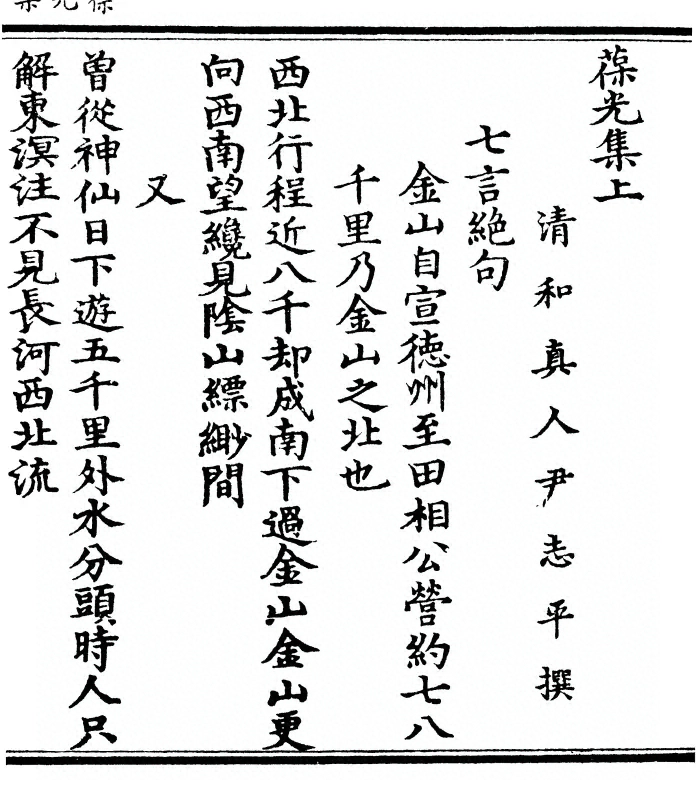 葆光集上
清和真人尹志平撰
七言絶句
金山自宣徳州至田相公營約七八
千里乃金山之北也
西北行程近八千却成南下過金山金山更
向西南望纔見陰山縹緲間
又
曾從神仙日下遊五千里外水分頭時人只
解東溟注不見長河西北流